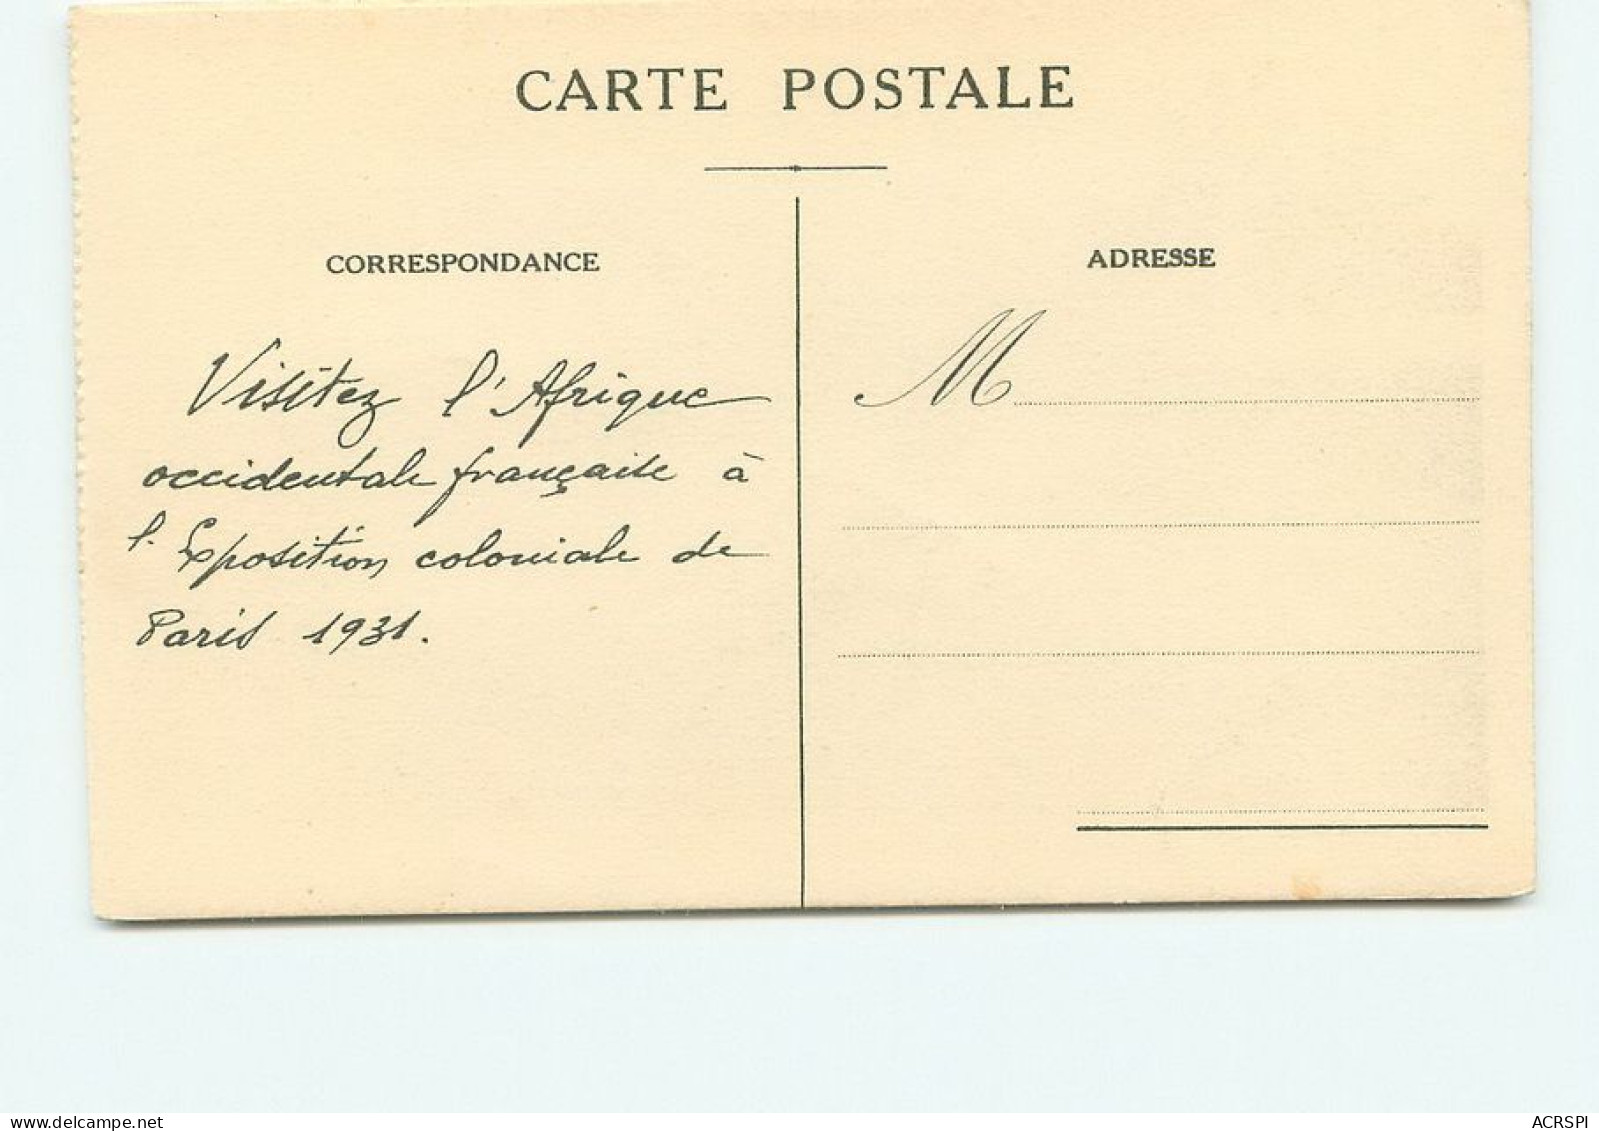 CARTE POSTALE
CORRESPONDANCE
ADRESSE
Visitez l'Afrique
occidentale française à
l'Exposition coloniale de
Paris 1931.
M
www.delcampe.net
ACRSPI